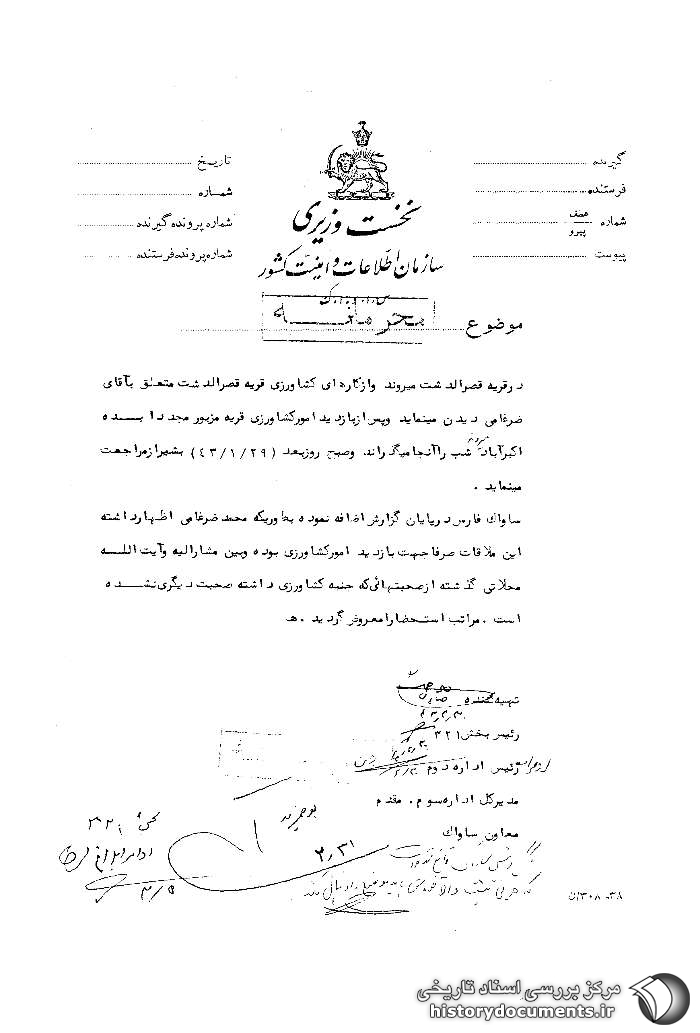 گیرنده
فرستنده
شماره عطف پیرو
پیوست
تاریخ
شماره
شماره پرونده گیرنده
شماره پرونده فرستنده
نخست وزیری
سازمان اطلاعات و امنیت کشور
س.ا.و.ا.ک
موضوع
محرمانه
در قریه قصرالدشت میروند و از کارهای کشاورزی قریه قصرالدشت متعلق بآقای
ضرغامی دیدن مینماید و پس از بازدید امور کشاورزی قریه مزبور مجددا بسنده
اکبرآباد میروند شب را آنجا میگذراند و صبح روز بعد (۴۳/۱/۲۹) بشیراز مراجعت
مینماید .
ساواک فارس در پایان گزارش اضافه نموده بطوریکه محمد ضرغامی اظهار داشته
این ملاقات صرفا جهت بازدید امور کشاورزی بوده و بین مشارالیه و آیت الله
محلاتی گذشته از صحبتهائی که جنبه کشاورزی داشته صحبت دیگری نشده
است . مراتب استحضارا معروض گردید . هـ
تهیه کننده
رئیس بخش ۳۲۱
رئیس اداره دوم
مدیرکل اداره سوم . مقدم
معاون ساواک
بخش ۳۲۱
۲/۳۱
۳/۵
مرکز بررسی اسناد تاریخی
historydocuments.ir